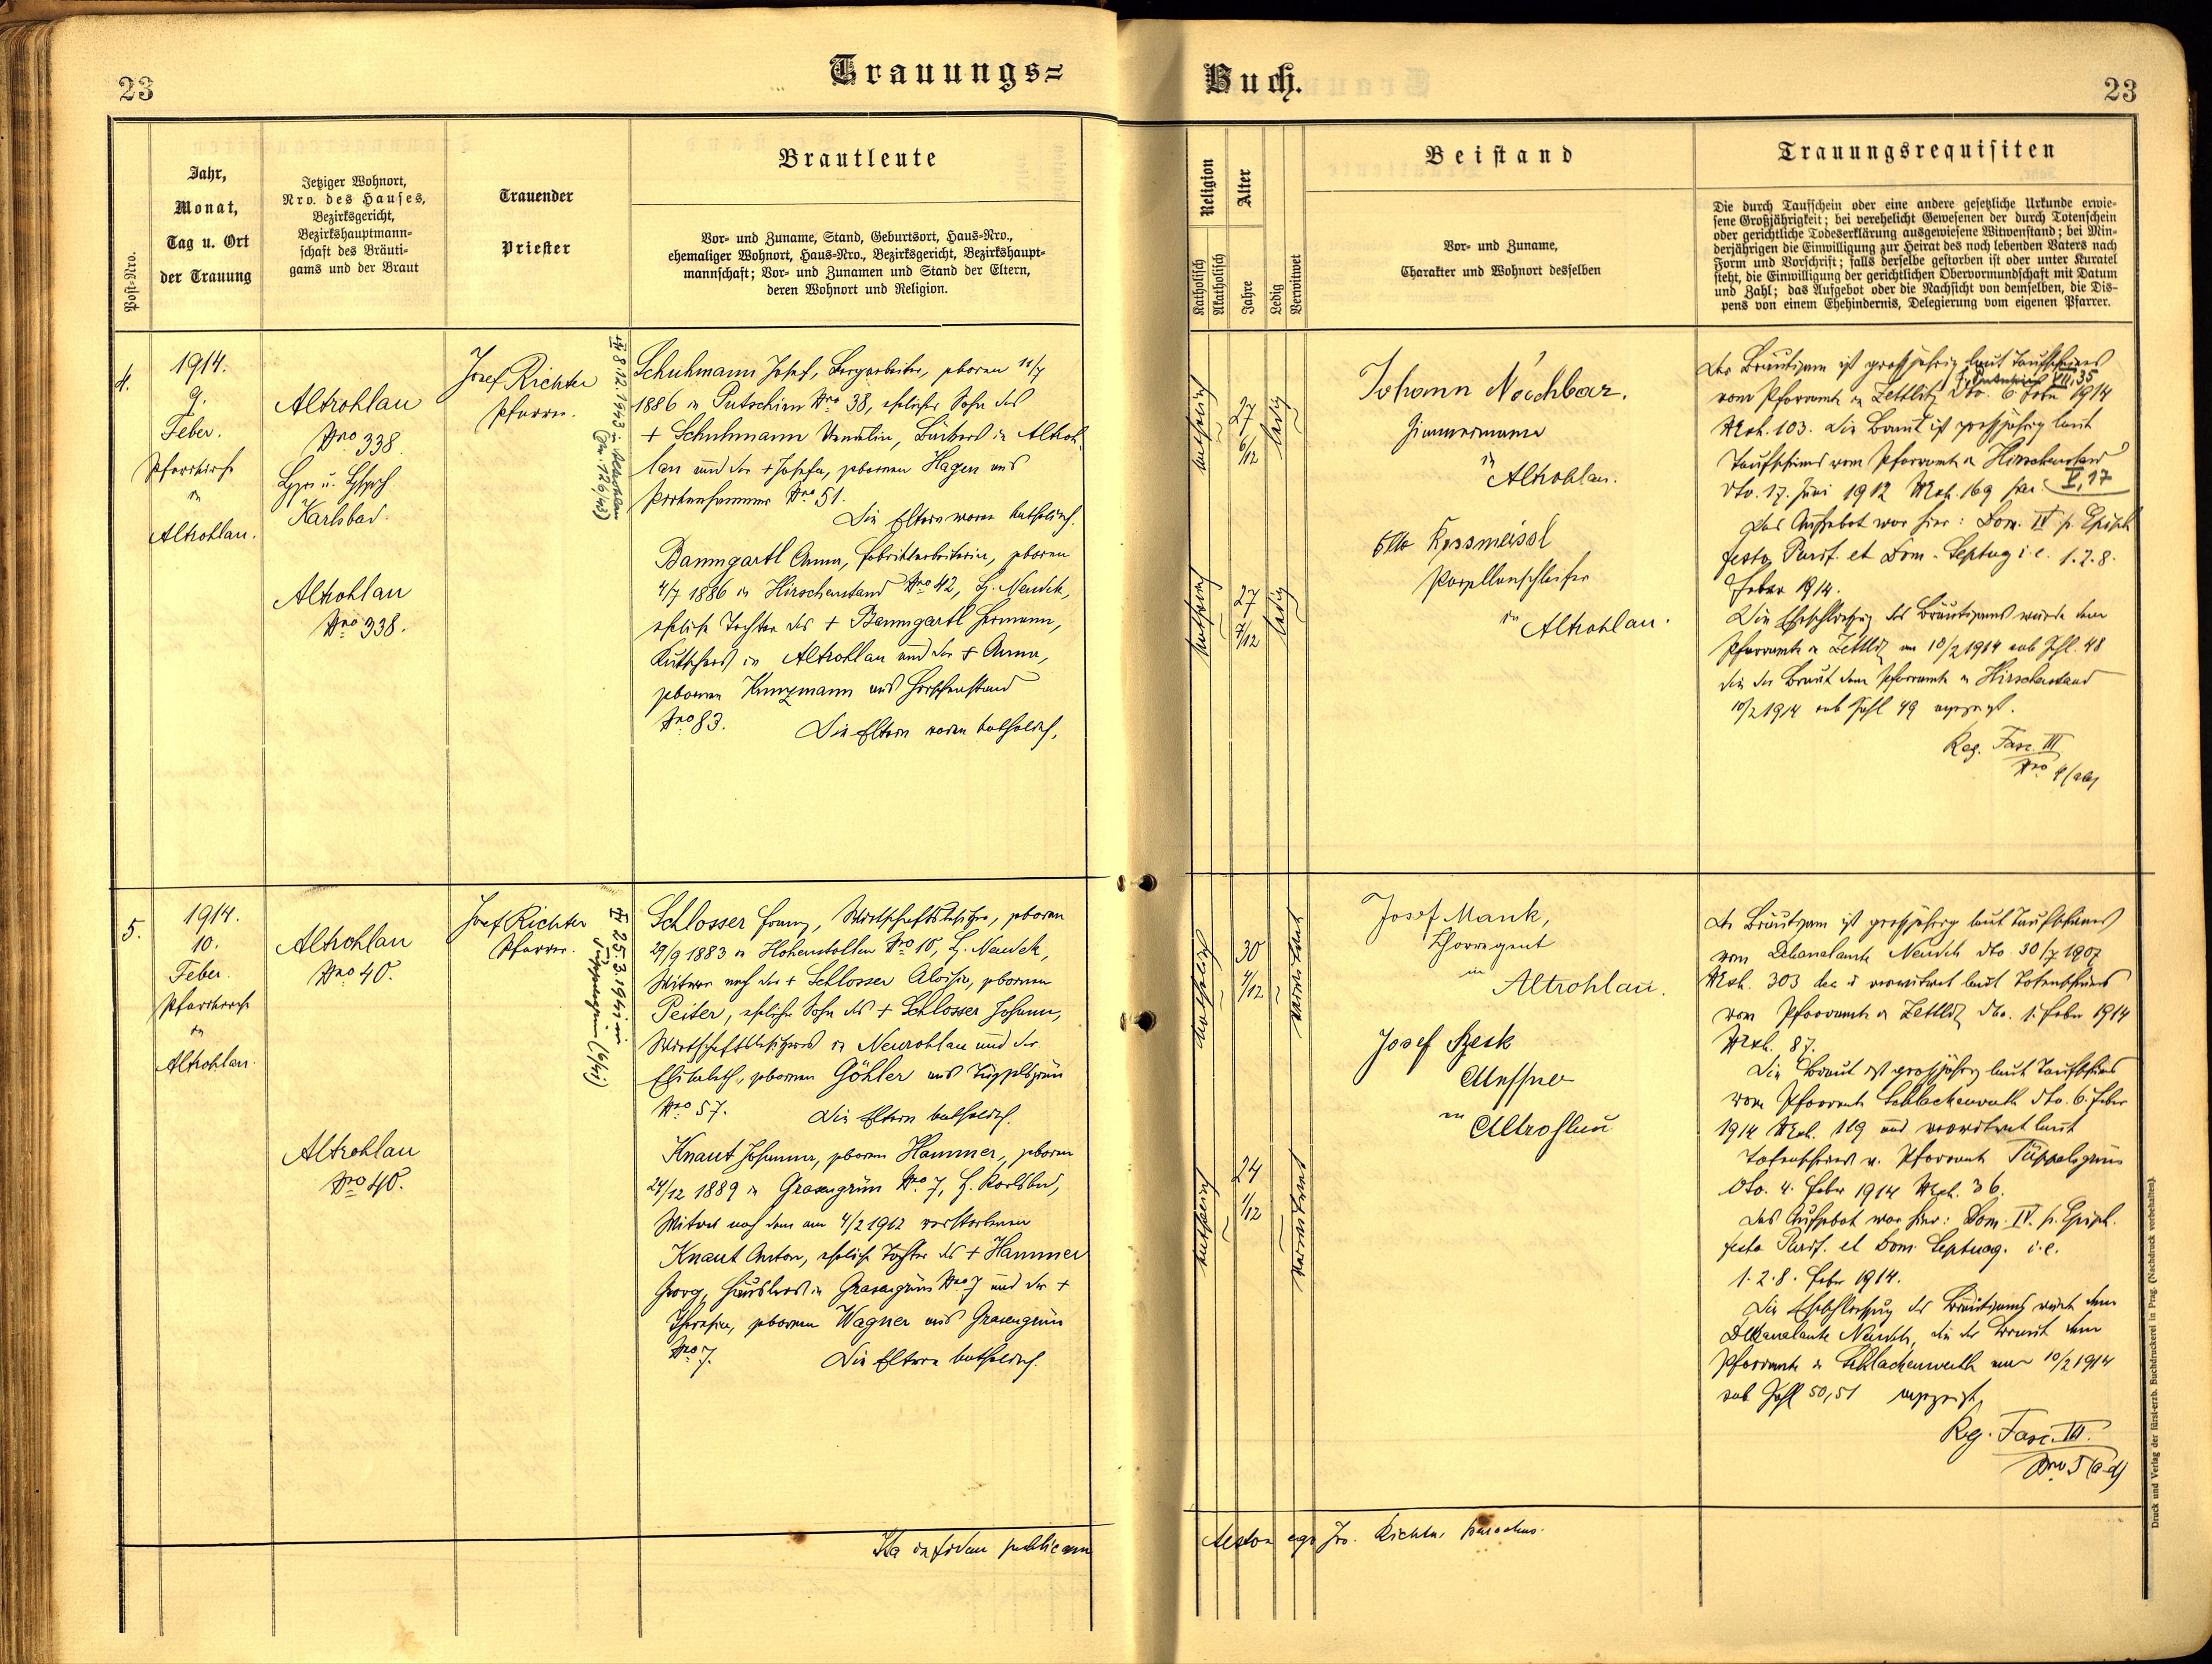 23
Trauungs=
Buch.
23
Post-Nro.
Jahr,
Monat,
Tag u. Ort
der Trauung
Jetziger Wohnort,
Nro. des Hauses,
Bezirksgericht,
Bezirkshauptmann-
schaft des Bräuti-
gams und der Braut
Trauender
Priester
Brautleute
Vor- und Zuname, Stand, Geburtsort, Haus-Nro.,
ehemaliger Wohnort, Haus-Nro., Bezirksgericht, Bezirkshaupt-
mannschaft; Vor- und Zunamen und Stand der Eltern,
deren Wohnort und Religion.
Religion
Katholisch
Akatholisch
Alter
Jahre
Ledig
Verwitwet
Beistand
Vor- und Zuname,
Charakter und Wohnort desselben
Trauungsrequisiten
Die durch Taufschein oder eine andere gesetzliche Urkunde erwie-
sene Großjährigkeit; bei verehelicht Gewesenen der durch Totenschein
oder gerichtliche Todeserklärung ausgewiesene Witwenstand; bei Min-
derjährigen die Einwilligung zur Heirat des noch lebenden Vaters nach
Form und Vorschrift; falls derselbe gestorben ist oder unter Kuratel
steht, die Einwilligung der gerichtlichen Obervormundschaft mit Datum
und Zahl; das Aufgebot oder die Nachsicht von demselben, die Dis-
pens von einem Ehehindernis, Delegierung vom eigenen Pfarrer.
4.
1914.
9.
Feber.
Pfarrkirche
in
Altrohlau.
Altrohlau
Nro 338.
Karlsbad.
Altrohlau
Nro 338.
Josef Richter
Pfarrer.
8.12.1943 in Altrohlau
Schuhmann Josef, Bergarbeiter, geboren 11/7
1886 in Putschirn Nro 38, ehelicher Sohn des
+ Schuhmann Wenzlin, Bäckers in Altroh-
lau und der + Josefa, geborenen Hagen aus
Nro 51.
Die Eltern waren katholisch.
Baumgartl Anna, Fabriksarbeiterin, geboren
4/7 1886 in Hirschenstand Nro 42, B. Neudek,
eheliche Tochter des + Baumgartl Hermann,
Kutschers in Altrohlau und der + Anna,
geborenen Kunzmann aus Hirschenstand
Nro 83.
Die Eltern waren katholisch.
katholisch
27
6/12
ledig
katholisch
27
7/12
ledig
Johann Nachbar.
Zimmermann
in
Altrohlau.
Otto Rossmeissl
Porzellanschleifer
in Altrohlau.
Der Bräutigam ist großjährig laut Taufscheines
VIII, 35
vom Pfarramte in Zettlitz dto. 6. Feber 1914
Mch. 103. Die Braut ist großjährig laut
Taufscheines vom Pfarramte in Hirschenstand
dto. 17. Juni 1912 Mch. 169 V, 17
Das Aufgebot war hier: Dom. IV p. Epiph.
festo Purif. et Dom. Septuag i. e. 1. 2. 8.
Feber 1914.
Die Eheschließung des Bräutigams wurde dem
Pfarramte in Zettlitz am 10/2 1914 sub Zhl. 48
die der Braut dem Pfarramte in Hirschenstand
10/2 1914 sub Zahl 49 angezeigt.
Reg. Fasc. III
Nro 4
5.
1914.
10.
Feber.
Pfarrkirche
in
Altrohlau.
Altrohlau
Nro 40.
Altrohlau
Nro 40.
Josef Richter
Pfarrer.
25.3.1941 in
Tüppelsgrün
Schlosser Franz, Wirtschaftsbesitzer, geboren
29/9 1883 in Hohenstollen Nro 10, B. Neudek,
Witwer nach der + Schlosser Aloisia, geborenen
Peiter, ehelicher Sohn des + Schlosser Johann,
Wirtschaftsbesitzers in Neurohlau und der
Elisabeth, geborenen Göhler aus Tüppelsgrün
Nro 57. Die Eltern katholisch.
Knaut Johanna, geboren Hammer, geboren
24/12 1889 in Grasengrün Nro 7, B. Karlsbad,
Witwe nach dem am 4/2 1912 verstorbenen
Knaut Anton, eheliche Tochter des + Hammer
Georg, Häuslers in Grasengrün Nro 7 und der +
Theresia, geborenen Wagner aus Grasengrün
Nro 7. Die Eltern katholisch.
katholisch
30
4/12
verwitwet
katholisch
24
1/12
verwitwet
Josef Mank,
Chorregent
in
Altrohlau.
Josef Szesk
Messner
in
Altrohlau
Der Bräutigam ist großjährig laut Taufscheines
vom Dekanalamte Neudek dto. 30/7 1907
Mch. 303 verwitwet laut Totenscheines
vom Pfarramte in Zettlitz dto. 1. Feber 1914
Mch. 87.
Die Braut ist großjährig laut Taufscheines
vom Pfarramte Schlackenwerth dto. 6. Feber
1914 Mch. 119 und verwitwet laut
Totenscheines v. Pfarramte Tüppelsgrün
dto. 4. Feber 1914 Mch. 36.
Das Aufgebot war hier: Dom. IV. p. Epiph.
festo Purif. et Dom. Septuag. i. e.
1. 2. 8. Feber 1914.
Die Eheschließung des Bräutigams wurde dem
Dekanalamte Neudek, die der Braut dem
Pfarramte in Schlackenwerth am 10/2 1914
sub Zahl 50, 51 angezeigt.
Reg. Fasc. III.
Nro 5 (a-d)
Ita in fidem publicam
testor ego Jos. Richter parochus.
Druck und Verlag der fürst-erzb. Buchdruckerei in Prag. (Nachdruck vorbehalten).